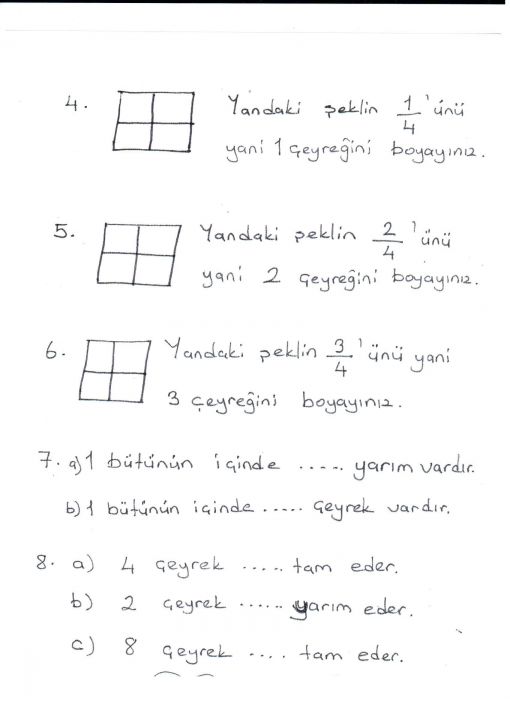 4. Yandaki şeklin 1/4'ünü
yani 1 çeyreğini boyayınız.
5. Yandaki şeklin 2/4'ünü
yani 2 çeyreğini boyayınız.
6. Yandaki şeklin 3/4'ünü yani
3 çeyreğini boyayınız.
7. a) 1 bütünün içinde ..... yarım vardır.
b) 1 bütünün içinde ..... çeyrek vardır.
8. a) 4 çeyrek ..... tam eder.
b) 2 çeyrek ...... yarım eder.
c) 8 çeyrek .... tam eder.